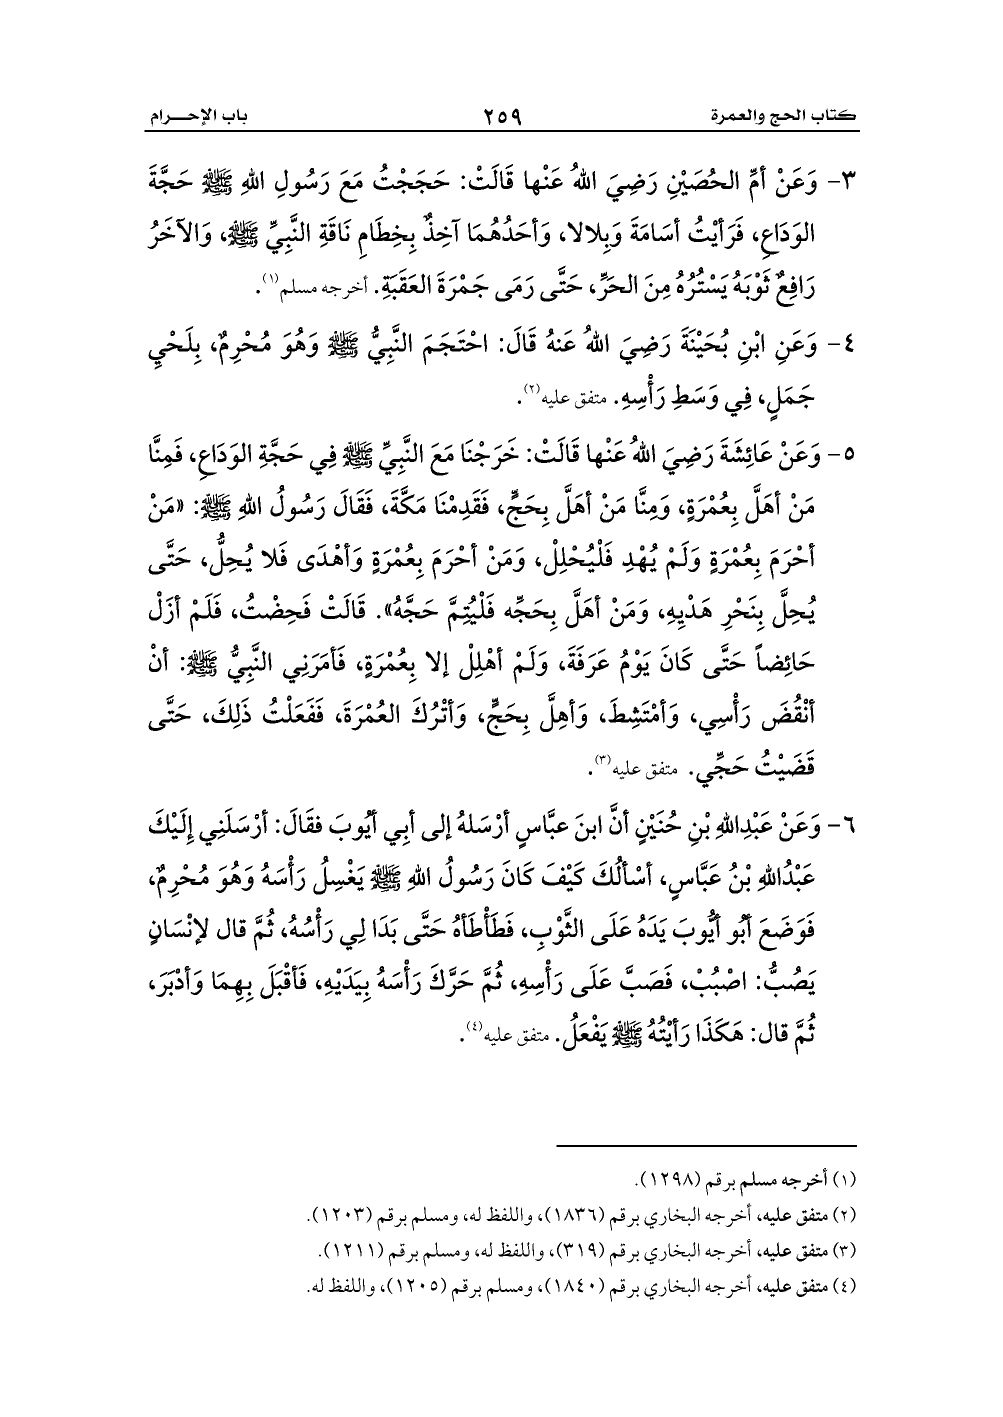 كتاب الحج والعمرة ٢٥٩ باب الإحـــرام
٣- وَعَنْ أمِّ الحُصَيْنِ رَضِيَ اللهُ عَنْها قَالَتْ: حَجَجْتُ مَعَ رَسُولِ اللهِ ﷺ حَجَّةَ
الوَدَاعِ، فَرَأيْتُ أسَامَةَ وَبِلالا، وَأحَدُهُمَا آخِذٌ بِخِطَامِ نَاقَةِ النَّبِيِّ ﷺ، وَالآخَرُ
رَافِعٌ ثَوْبَهُ يَسْتُرُهُ مِنَ الحَرِّ، حَتَّى رَمَى جَمْرَةَ العَقَبَةِ. أخرجه مسلم(١).
٤- وَعَنِ ابْنِ بُحَيْنَةَ رَضِيَ اللهُ عَنهُ قَالَ: احْتَجَمَ النَّبِيُّ ﷺ وَهُوَ مُحْرِمٌ، بِلَحْيِ
جَمَلٍ، فِي وَسَطِ رَأْسِهِ. متفق عليه(٢).
٥- وَعَنْ عَائِشَةَ رَضِيَ اللهُ عَنْها قَالَتْ: خَرَجْنَا مَعَ النَّبِيِّ ﷺ فِي حَجَّةِ الوَدَاعِ، فَمِنَّا
مَنْ أهَلَّ بِعُمْرَةٍ، وَمِنَّا مَنْ أهَلَّ بِحَجٍّ، فَقَدِمْنَا مَكَّةَ، فَقَالَ رَسُولُ اللهِ ﷺ: «مَنْ
أحْرَمَ بِعُمْرَةٍ وَلَمْ يُهْدِ فَلْيُحْلِلْ، وَمَنْ أحْرَمَ بِعُمْرَةٍ وَأهْدَى فَلا يُحِلُّ، حَتَّى
يُحِلَّ بِنَحْرِ هَدْيِهِ، وَمَنْ أهَلَّ بِحَجِّه فَلْيُتِمَّ حَجَّهُ». قَالَتْ فَحِضْتُ، فَلَمْ أزَلْ
حَائِضاً حَتَّى كَانَ يَوْمُ عَرَفَةَ، وَلَمْ أهْلِلْ إلا بِعُمْرَةٍ، فَأمَرَنِي النَّبِيُّ ﷺ: أنْ
أنْقُضَ رَأْسِي، وَأمْتَشِطَ، وَأهِلَّ بِحَجٍّ، وَأتْرُكَ العُمْرَةَ، فَفَعَلْتُ ذَلِكَ، حَتَّى
قَضَيْتُ حَجِّي. متفق عليه(٣).
٦- وَعَنْ عَبْدِاللهِ بْنِ حُنَيْنٍ أنَّ ابنَ عبَّاسٍ أرْسَلهُ إلى أبِي أيُوبَ فقَالَ: أرْسَلَنِي إلَيْكَ
عَبْدُاللهِ بْنُ عَبَّاسٍ، أسْألُكَ كَيْفَ كَانَ رَسُولُ اللهِ ﷺ يَغْسِلُ رَأْسَهُ وَهُوَ مُحْرِمٌ،
فَوَضَعَ أبُو أيُّوبَ يَدَهُ عَلَى الثَّوْبِ، فَطَأْطَأهُ حَتَّى بَدَا لِي رَأْسُهُ، ثُمَّ قال لإنْسَانٍ
يَصُبُّ: اصْبُبْ، فَصَبَّ عَلَى رَأْسِهِ، ثُمَّ حَرَّكَ رَأْسَهُ بِيَدَيْهِ، فَأقْبَلَ بِهِمَا وَأدْبَرَ،
ثُمَّ قال: هَكَذَا رَأيْتُهُ ﷺ يَفْعَلُ. متفق عليه(٤).
(١) أخرجه مسلم برقم (١٢٩٨).
(٢) متفق عليه، أخرجه البخاري برقم (١٨٣٦)، واللفظ له، ومسلم برقم (١٢٠٣).
(٣) متفق عليه، أخرجه البخاري برقم (٣١٩)، واللفظ له، ومسلم برقم (١٢١١).
(٤) متفق عليه، أخرجه البخاري برقم (١٨٤٠)، ومسلم برقم (١٢٠٥)، واللفظ له.